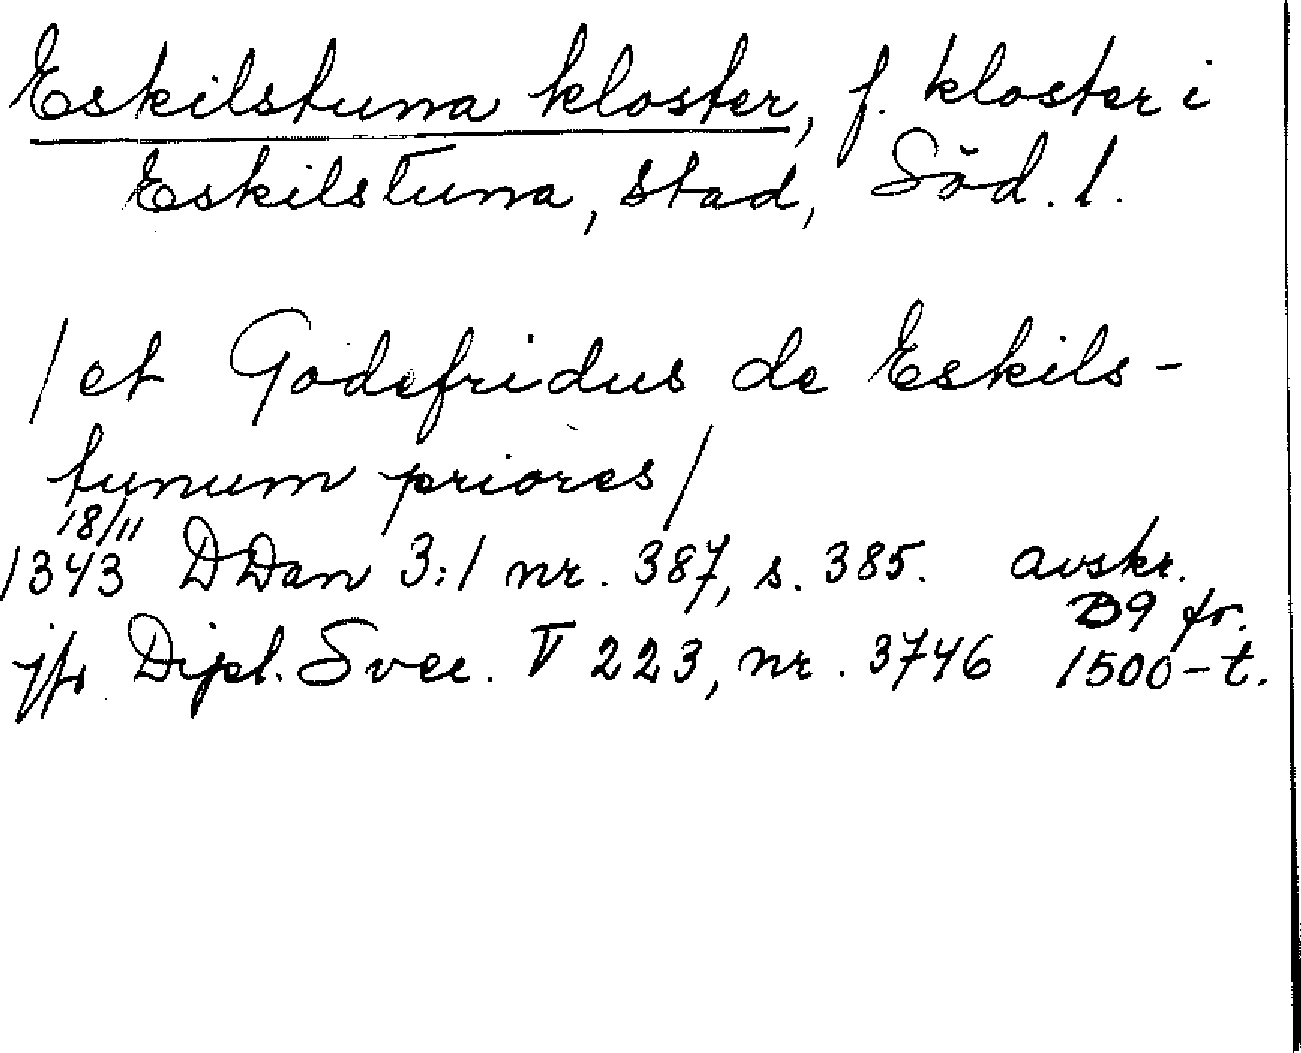 Eskilstuna kloster, f. kloster i
Eskilstuna, stad, Söd. l.
/et Godefridus de Eskils-
tunum priores/
18/11
1343 DDan 3:1 nr. 387, s. 385. avskr.
B9 fr.
jfr Dipl. Svec. V 223, nr. 3746 1500-t.